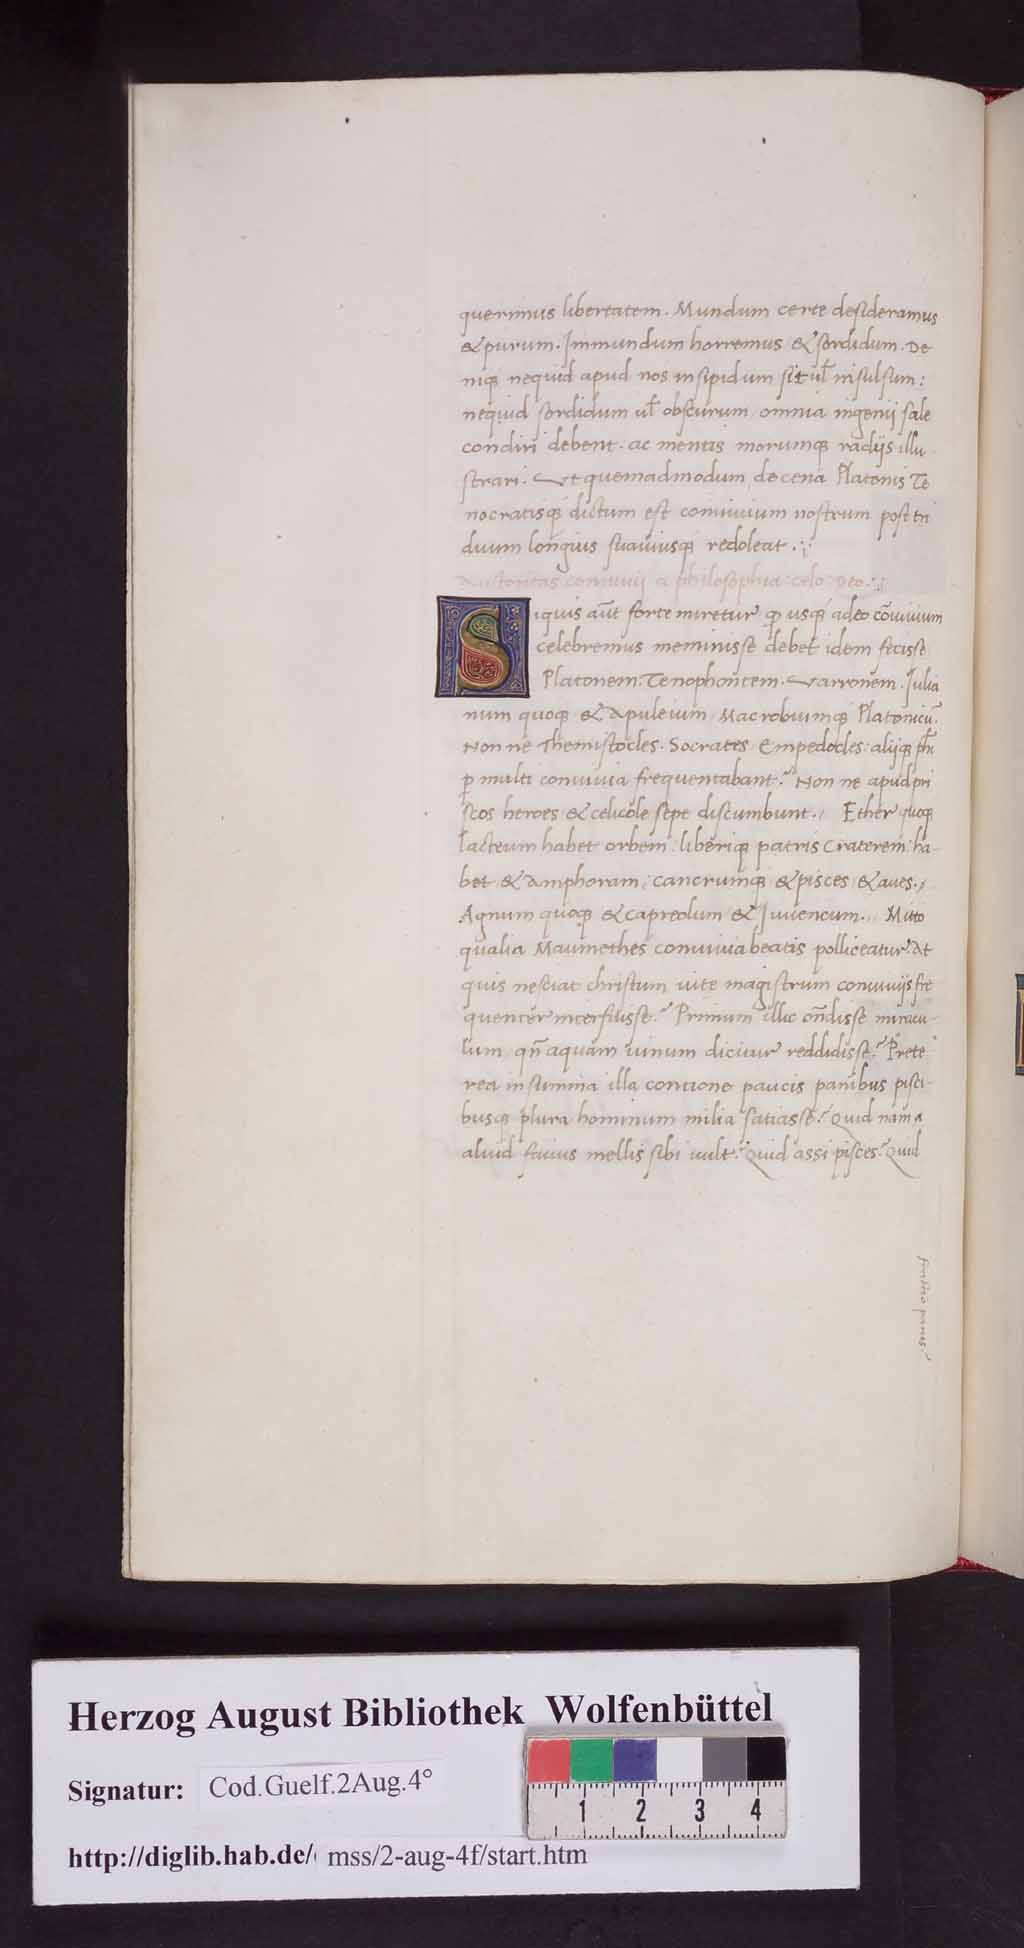 querimus libertatem. Mundum certe desideramus
& purum. Immundum horremus & sordidum. De
niq; nequid apud nos insipidum sit ul̄ insulsum:
nequid sordidum ul̄ obscurum, omnia ingenij sale
condiri debent. ac mentis morumq; radijs illu
strari. Ut quemadmodum de cena Platonis Te
nocratisq; dictum est conuiuium nostrum post tri
duum longius suauiusq; redoleat.
Autoritas conuiuij a philosophia: celo: Deo.
Siquis aūt forte miretur ꝙ usq; adeo cōuiuium
celebremus meminisse debet idem fecisse
Platonem. Tenophontem. Varronem. Iulia
num quoq; & Apuleium Macrobiumq; Platonicū.
Non ne Themistocles. Socrates Empedocles: alijq; phi
ꝑ multi conuiuia frequentabant? Non ne apud pri
scos heroes & celicole sepe discumbunt. Ether quoq;
lacteum habet orbem: liberiq; patris Craterem: ha
bet & Amphoram, cancrumq; & pisces & aues.
Agnum quoq; & capreolum & Iuuencum. Mitto
qualia Maumethes conuiuia beatis polliceatur. At
quis nesciat christum uite magistrum conuiuijs fre
quenter interfuisse? Primum illic on̄disse miracu-
lum, qn̄ aquam uinum dicitur reddidisse? Prete
rea in summa illa contione paucis panibus pisci-
busq; plura hominum milia satiasse? Quid nam a
aliud fauus mellis sibi uult? Quid assi pisces? Quid
Herzog August Bibliothek Wolfenbüttel
Signatur: Cod.Guelf.2Aug.4°
1 2 3 4
http://diglib.hab.de/ mss/2-aug-4f/start.htm